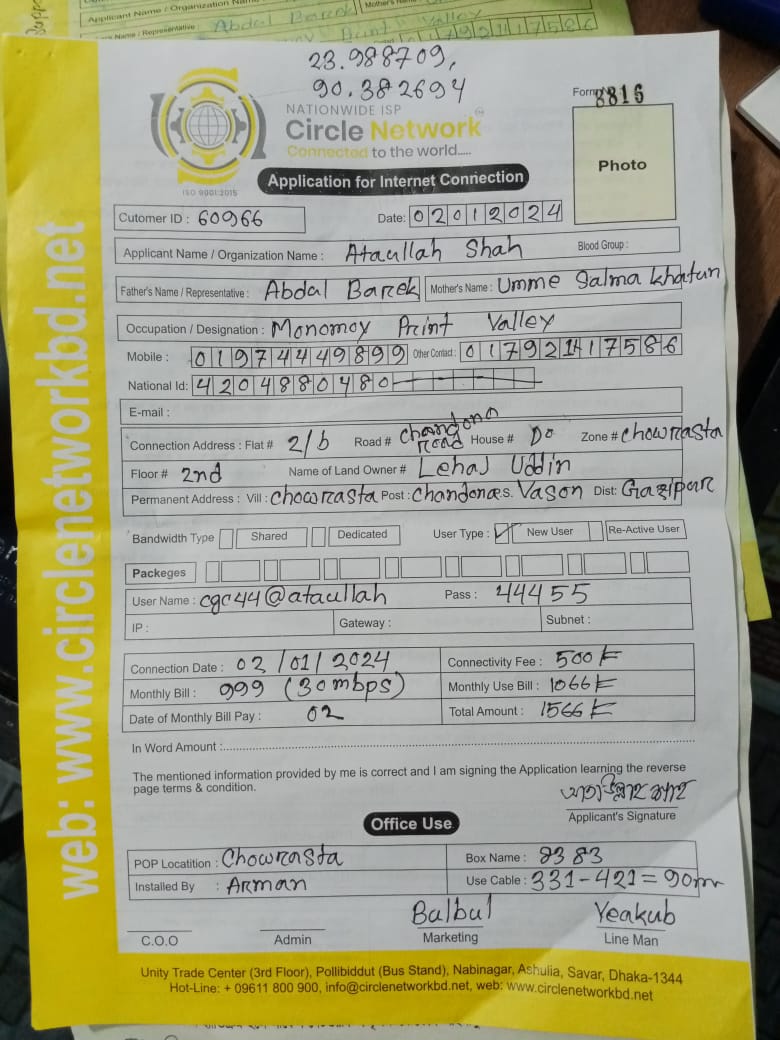 Applicant Name / Organization Na
Mother's Na
Name / Representative : Abdul Barek
23.988709,
90.382694
NATIONWIDE ISP
Circle Network
Connected to the world.....
ISO 9001:2015
Form 8816
Photo
Application for Internet Connection
Cutomer ID : 60966 Date: 02012024
Applicant Name / Organization Name : Ataullah Shah Blood Group :
Father's Name / Representative : Abdal Barek Mother's Name : Umme Salma Khatun
Occupation / Designation : Monomoy Print Valley
Mobile : 01974449899 Other Contact : 01792117586
National Id: 4204880480
E-mail :
Connection Address : Flat # 2/b Road # Chandona Road House # Do Zone # Chowrasta
Floor # 2nd Name of Land Owner # Lehaj Uddin
Permanent Address : Vill : Chowrasta Post : Chandona P.S. Vason Dist: Gazipur
Bandwidth Type Shared Dedicated User Type : New User Re-Active User
Packeges
User Name : cgc44@ataullah Pass : 44455
IP : Gateway : Subnet :
Connection Date : 02/01/2024 Connectivity Fee : 500 ৳
Monthly Bill : 999 (30mbps) Monthly Use Bill : 1066 ৳
Date of Monthly Bill Pay : 02 Total Amount : 1566 ৳
In Word Amount :
The mentioned information provided by me is correct and I am signing the Application learning the reverse
page terms & condition.
আতাউল্লাহ শাহ
Applicant's Signature
Office Use
POP Locatition : Chowrasta Box Name : 8383
Installed By : Arman Use Cable : 331-421=90m
Balbul Yeakub
C.O.O Admin Marketing Line Man
Unity Trade Center (3rd Floor), Pollibiddut (Bus Stand), Nabinagar, Ashulia, Savar, Dhaka-1344
Hot-Line: + 09611 800 900, info@circlenetworkbd.net, web: www.circlenetworkbd.net
web: www.circlenetworkbd.net